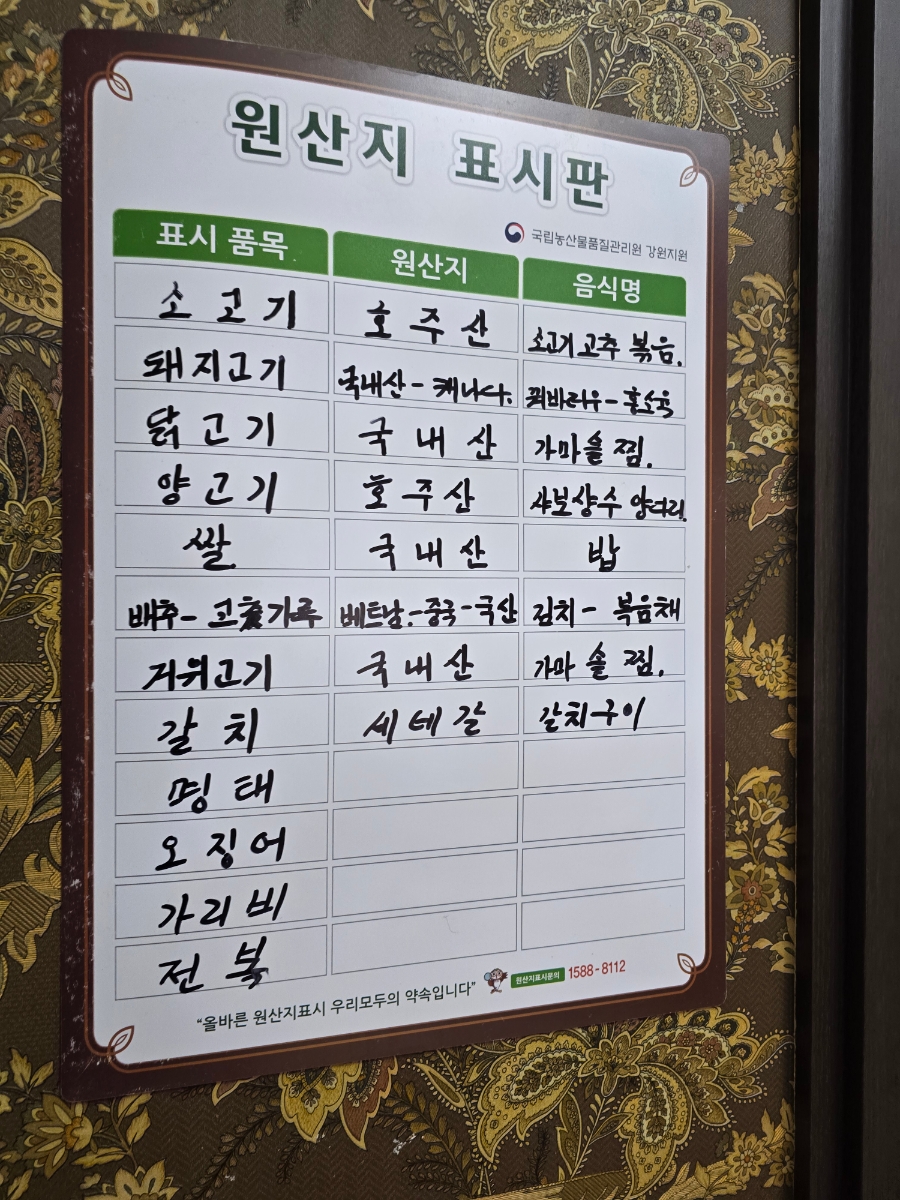 원산지 표시판
국립농산물품질관리원 강원지원
표시 품목 원산지 음식명
소고기 호주산 소고기고추 볶음.
돼지고기 국내산 - 캐나다. 꿔바러우 - 홍소육
닭고기 국내산 가마솥 찜.
양고기 호주산 샤보샹수
쌀 국내산 밥
배추 - 고춧가루 베트남. - 중국 - 국산 김치 - 볶음채
거위고기 국내산 가마 솥 찜.
갈치 세네갈 갈치구이
명태
오징어
가리비
전복
“올바른 원산지표시 우리모두의 약속입니다” 원산지표시문의 1588-8112